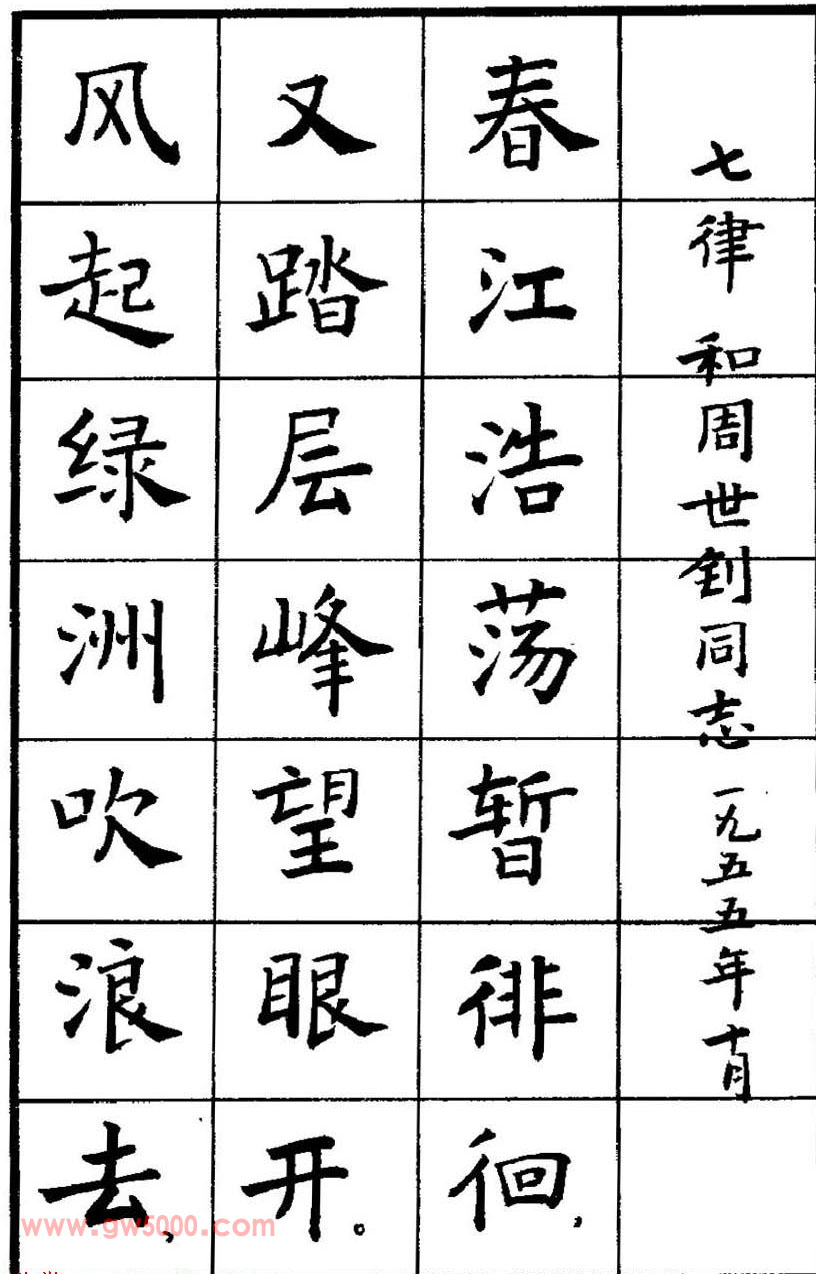 七律 和周世钊同志 一九五五年十月
春江浩荡暂徘徊，
又踏层峰望眼开。
风起绿洲吹浪去，
www.gw5000.com